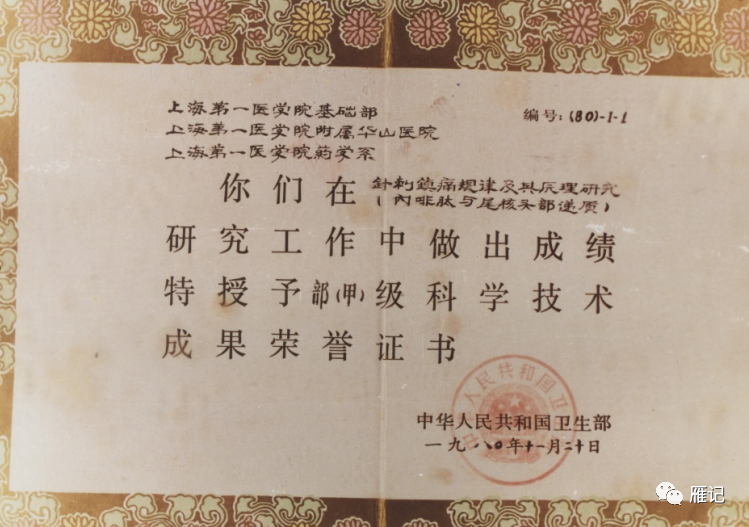 上海第一医学院基础部
编号:(80)-1-1
上海第一医学院附属华山医院
上海第一医学院药学系
你们在 針刺鎮痛規律及其原理研究
(內啡肽与尾核头部递质)
研究工作中做出成绩
特授予部(甲)级科学技术
成果荣誉证书
中华人民共和国卫生部
中华人民共和国卫生部
一九八〇年十一月二十日
雁记